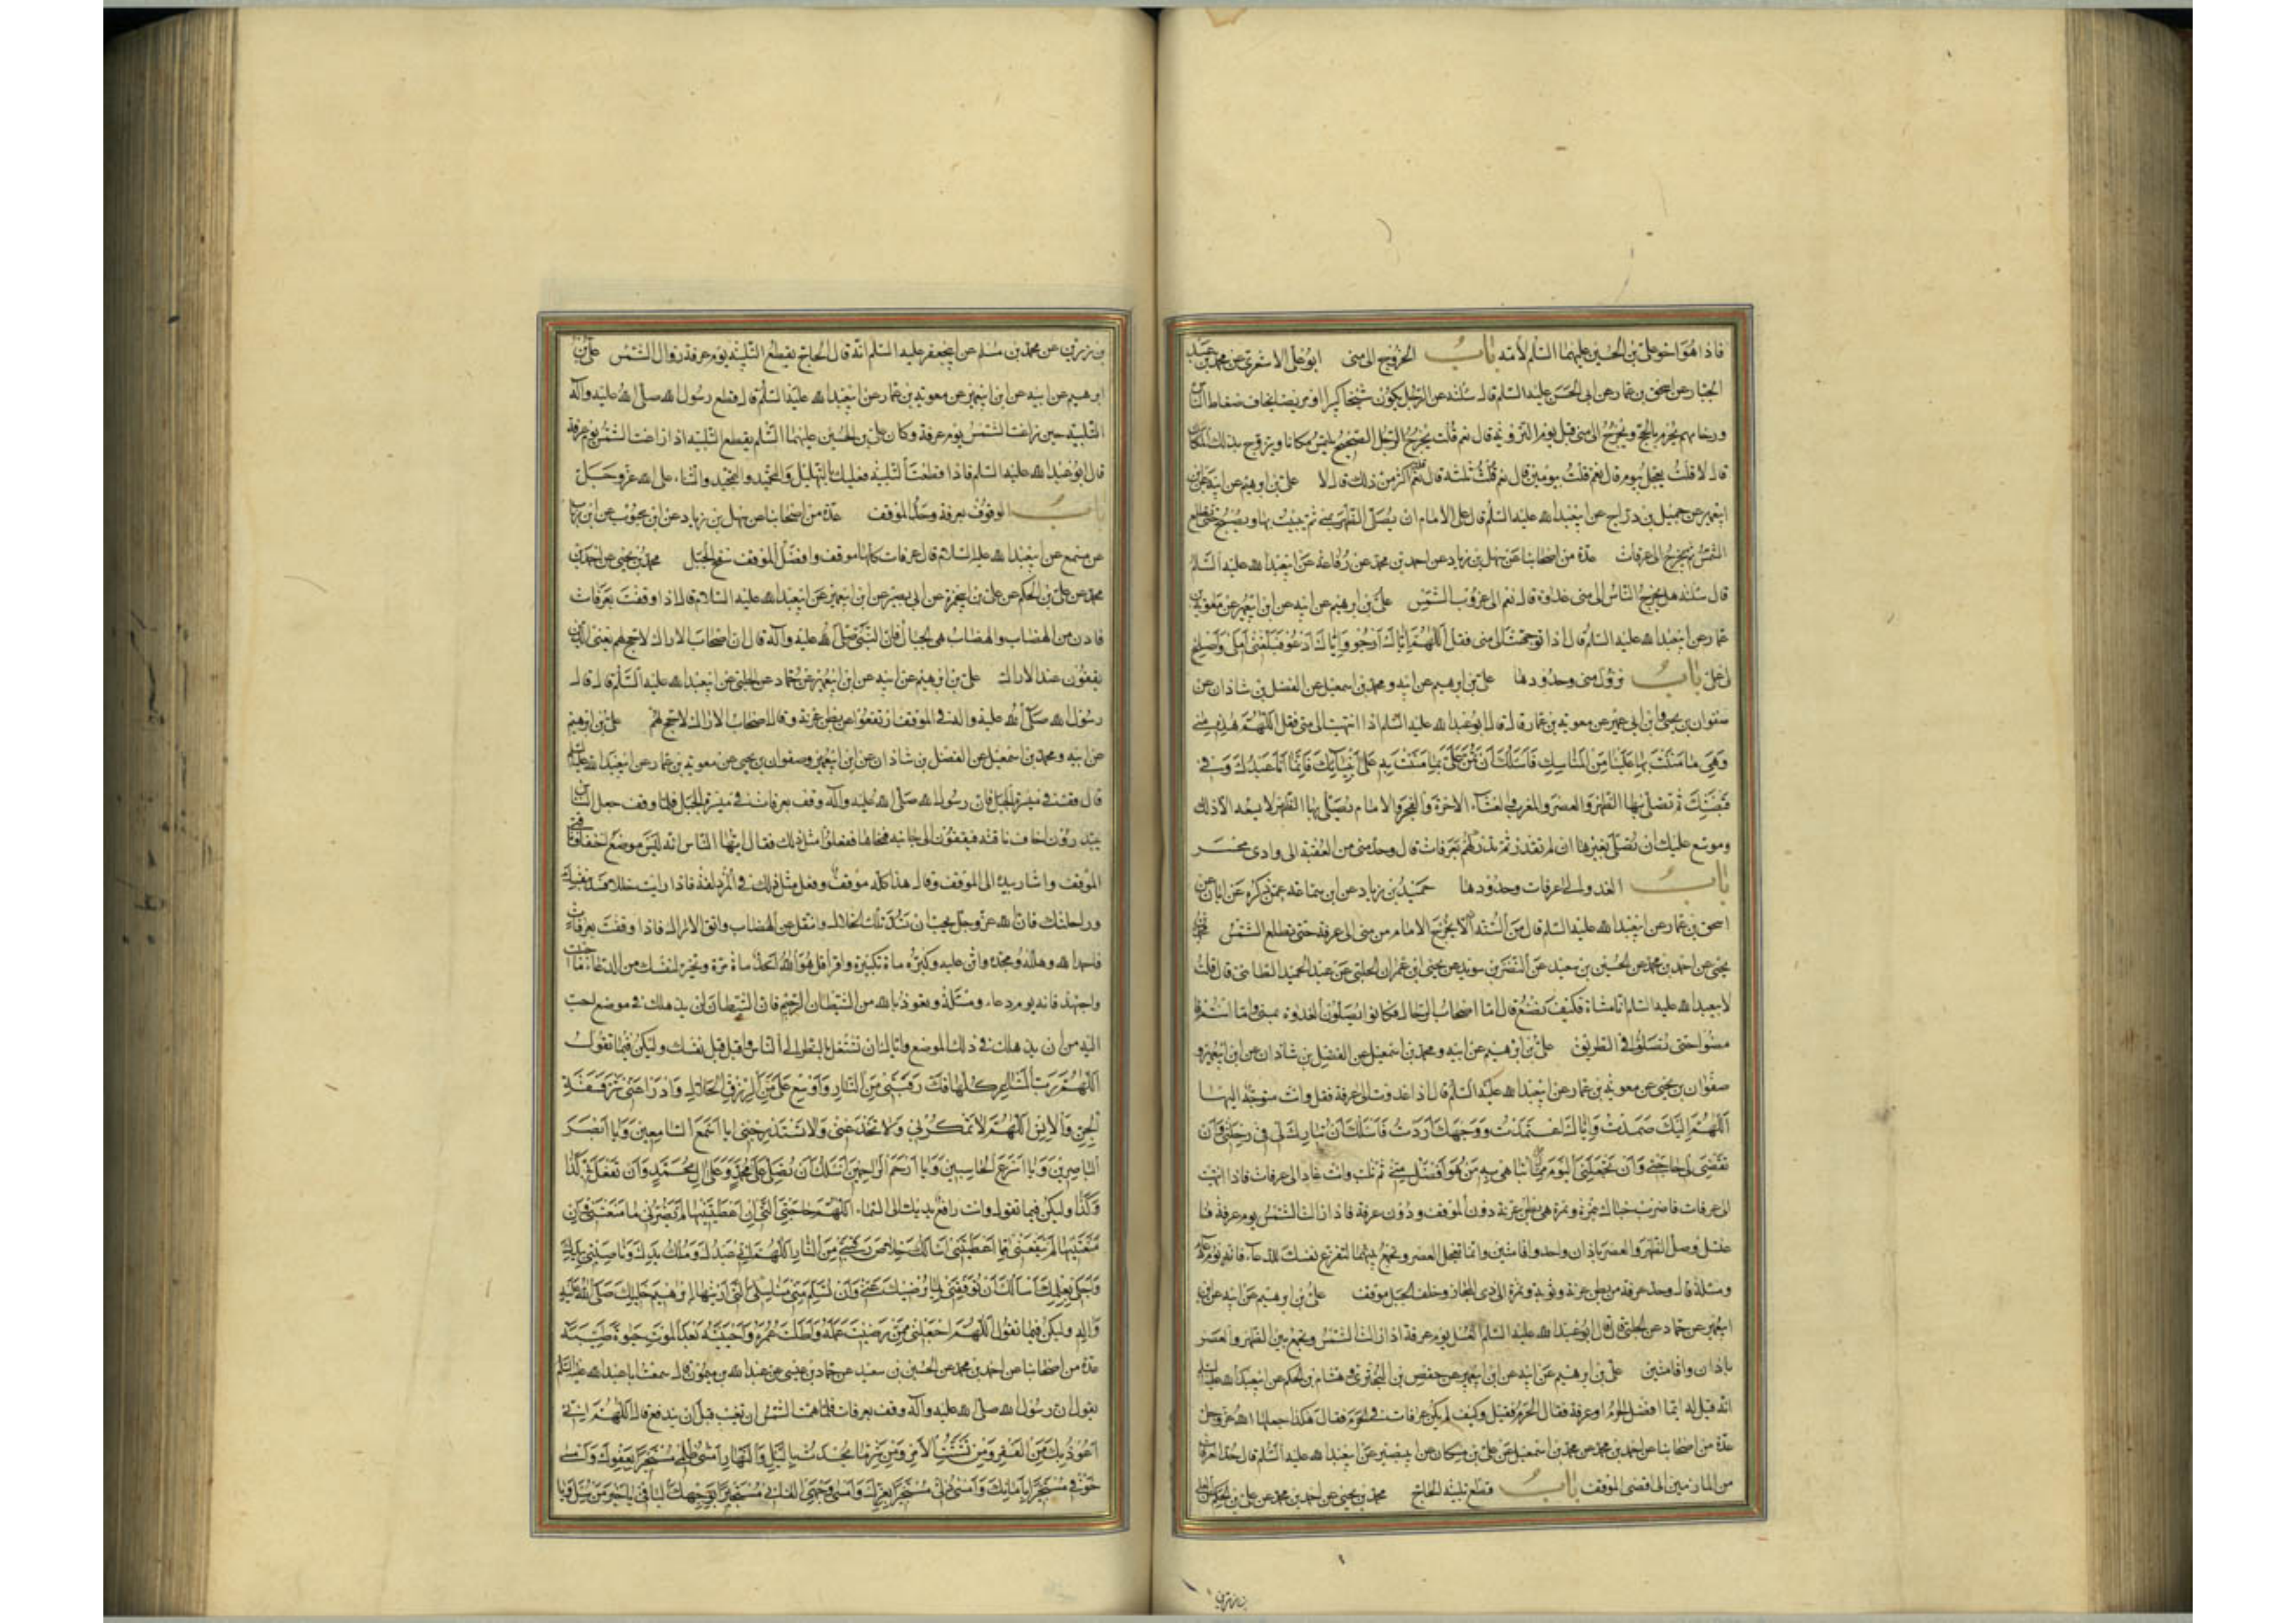 فاذا هو اخو علي بن الحسين عليهما السلم لأمه باب الخروج الى منى ابو علي الاشعري عن محمد بن عبد
الجبار عن اسحق بن عمار عن ابي الحسن عليه السلم قال سئلته عن الرجل يكون شيخا كبيرا او مريضا يخاف ضغاط الناس
وزحامهم يحرم بالحج ويخرج الى منى قبل يوم التروية قال نعم قلت يخرج الرجل الصحيح يلتمس مكانا ويتروح بذلك المكان
قال لا قلت يعجل بيوم قال نعم قلت بيومين قال نعم قلت ثلثه قال نعم قلت اكثر من ذلك قال لا علي بن ابرهيم عن ابيه عن ابن
ابيعمير عن جميل بن دراج عن ابيعبد الله عليه السلم قال على الامام ان يصلي الظهر بمنى ثم يبيت بها ويصبح حتى تطلع
الشمس ثم يخرج الى عرفات عدة من اصحابنا عن سهل بن زياد عن احمد بن محمد عن رفاعة عن ابيعبد الله عليه السلم
قال سئلته هل يخرج الناس الى منى غداوة قال نعم الى غروب الشمس علي بن ابرهيم عن ابيه عن ابن ابيعمير عن معوية بن
عمار عن ابيعبد الله عليه السلم قال اذا توجهت الى منى فقل اللهم اياك ارجو واياك ادعو فبلغني املي واصلح
لي عملي باب نزول منى وحدودها علي بن ابرهيم عن ابيه ومحمد بن اسمعيل عن الفضل بن شاذان عن
صفوان بن يحيى وابن ابي عمير عن معوية بن عمار قال قال ابوعبد الله عليه السلم اذا انتهيت الى منى فقل اللهم هذه منى
وهي مما مننت بها علينا من المناسك فاسئلك ان تمن علي بما مننت به على انبيائك فانما انا عبدك وفي
قبضتك ثم تصلي بها الظهر والعصر والمغرب والعشاء الاخرة والفجر والامام يصلي بها الظهر لا يسعه الا ذلك
وموسع عليك ان تصلي بغيرها ان لم تقدر ثم تدركهم بعرفات قال وحد منى من العقبة الى وادي محسر
باب الغدو الى عرفات وحدودها حميد بن زياد عن ابن سماعه عمن ذكره عن ابان عن
اسحق بن عمار عن ابيعبد الله عليه السلم قال من السنة الا يخرج الامام من منى الى عرفة حتى تطلع الشمس محمد بن
يحيى عن احمد بن محمد عن الحسين بن سعيد عن النضر بن سويد عن يحيى ابن عمران الحلبي عن عبد الحميد الطائي قال قلت
لابيعبد الله عليه السلم انا مشاة فكيف نصنع قال اما اصحاب الرحال فكانوا يصلون الغدوة بمنى واما انتم فا
مشوا حتى تصلوا في الطريق علي بن ابرهيم عن ابيه ومحمد بن اسمعيل عن الفضل بن شاذان عن ابن ابيعمير و
صفوان بن يحيى عن معوية بن عمار عن ابيعبد الله عليه السلم قال اذا غدوت الى عرفة فقل وانت متوجه اليها
اللهم اليك صمدت واياك اعتمدت ووجهك اردت فاسئلك ان تبارك لي في رحلتي وان
تقضي لي حاجتي وان تجعلني اليوم ممن تباهي به من هو افضل مني ثم تلب وانت غاد الى عرفات فاذا انتهيت
الى عرفات فاضرب خباك بنمرة ونمرة هي بطن عرنة دون الموقف ودون عرفة فاذا زالت الشمس يوم عرفة فا
غتسل وصل الظهر والعصر باذان واحد واقامتين وانما تعجل العصر وتجمع بينهما لتفرغ نفسك للدعاء فانه يوم دعاء
ومسئلة قال وحد عرفة من بطن عرنة وثوية ونمرة الى ذي المجاز وخلف الجبل موقف علي بن ابرهيم عن ابيه عن ابن
ابيعمير عن حماد عن الحلبي قال قال ابوعبد الله عليه السلم الغسل يوم عرفة اذا زالت الشمس وتجمع بين الظهر والعصر
باذان واقامتين علي بن ابرهيم عن ابيه عن ابن ابيعمير عن حفص بن البختري وهشام بن الحكم عن ابيعبد الله عليه السلم
انه قيل له ايما افضل الحرم او عرفة فقال الحرم فقيل وكيف لم يكن عرفات في الحرم فقال هكذا جعلها الله عز وجل
عدة من اصحابنا عن احمد بن محمد عن محمد بن اسمعيل عن علي بن مسكان عن ابيبصير عن ابيعبد الله عليه السلم قال حد عرفات
من المازمين الى اقصى الموقف باب قطع تلبية الحاج محمد بن يحيى عن احمد بن محمد عن علي بن الحكم عن العلا
بن رزين عن محمد بن مسلم عن ابيجعفر عليه السلم انه قال الحاج يقطع التلبية يوم عرفة زوال الشمس علي بن
ابرهيم عن ابيه عن ابن ابيعمير عن معوية بن عمار عن ابيعبد الله عليه السلم قال قطع رسول الله صلى الله عليه وآله
التلبية حين زاغت الشمس يوم عرفة وكان علي بن الحسين عليهما السلم يقطع التلبية اذا زاغت الشمس يوم عرفة
قال ابوعبد الله عليه السلم فاذا قطعت التلبية فعليك بالتهليل والتحميد والتمجيد والثناء على الله عز وجل
باب الوقوف بعرفة وحد الموقف عدة من اصحابنا عن سهل بن زياد عن ابن محبوب عن ابن رئاب
عن مسمع عن ابيعبد الله عليه السلام قال عرفات كلها موقف وافضل الموقف سفح الجبل محمد بن يحيى عن احمد بن
محمد عن علي بن الحكم عن علي بن ابيحمزة عن ابي بصير عن ابن ابيعمير عن ابيعبد الله عليه السلام قال اذا وقفت بعرفات
فادن من الهضاب والهضاب هي الجبال فان النبي صلى الله عليه وآله قال ان اصحاب الاراك لا حج لهم يعني الذين
يقفون عند الاراك علي بن ابرهيم عن ابيه عن ابن ابيعمير عن حماد عن الحلبي عن ابيعبد الله عليه السلم قال قال
رسول الله صلى الله عليه واله في الموقف ارتفعوا عن بطن عرنة وقال اصحاب الاراك لا حج لهم علي بن ابرهيم
عن ابيه ومحمد بن اسمعيل عن الفضل بن شاذان عن ابن ابيعمير وصفوان بن يحيى عن معوية بن عمار عن ابيعبد الله عليه السلم
قال قف في ميسرة الجبل فان رسول الله صلى الله عليه وآله وقف بعرفات في ميسرة الجبل فلما وقف جعل الناس
يبتدرون اخفاف ناقته فيقفون الى جانبه فنحاها ففعلوا مثل ذلك فقال ايها الناس انه ليس موضع اخفاف ناقتي
الموقف واشار بيده الى الموقف وقال هذا كله موقف وفعل مثل ذلك في المزدلفة فاذا رايت خللا فسده بنفسك
وراحلتك فان الله عز وجل يحب ان تسد تلك الخلال وانتقل عن الهضاب واتق الاراك فاذا وقفت بعرفات
فاحمد الله وهلله ومجده واثن عليه وكبره مائة تكبيرة واقرا قل هو الله احد مائة مرة وتخير لنفسك من الدعاء ما احببت
واجتهد فانه يوم دعاء ومسئلة وتعوذ بالله من الشيطان الرجيم فان الشيطان لن يذهلك في موضع احب
اليه من ان يذهلك في ذلك الموضع واياك ان تشتغل بالنظر الى الناس واقبل قبل نفسك وليكن فيما تقول
اللهم رب المشاعر كلها فك رقبتي من النار واوسع علي من الرزق الحلال وادرا عني شر فسقة
الجن والانس اللهم لا تمكر بي ولا تخدعني ولا تستدرجني يا اسمع السامعين ويا ابصر
الناصرين ويا اسرع الحاسبين ويا ارحم الراحمين اسئلك ان تصلي على محمد وعلى ال محمد وان تفعل بي كذا
وكذا وليكن فيما تقول وانت رافع يديك الى السماء اللهم حاجتي التي ان اعطيتنيها لم يضرني ما منعتني وان
منعتنيها لم ينفعني ما اعطيتني اسالك خلاص رقبتي من النار اللهم اني عبدك وملك يدك وناصيتي بيدك
واجلي بعلمك اسالك ان توفقني لما يرضيك عني وان تسلم مني مناسكي التي اريتها ابرهيم خليلك صلى الله عليه
واله وليكن فيما تقول اللهم اجعلني ممن رضيت عمله واطلت عمره واحييته بعد الموت حيوة طيبة
عدة من اصحابنا عن احمد بن محمد عن الحسين بن سعيد عن حماد بن عيسى عن عبد الله بن ميمون قال سمعت ابا عبد الله عليه السلم
يقول ان رسول الله صلى الله عليه وآله وقف بعرفات فلما همت الشمس ان تغيب قبل ان يندفع قال اللهم اني
اعوذ بك من الفقر ومن تشتت الامر ومن شر ما يحدث بالليل والنهار امسى ظلمي مستجيرا بعفوك وامسى
خوفي مستجيرا بامانك وامسى ذلي مستجيرا بعزك وامسى وجهي الفاني مستجيرا بوجهك الباقي يا خير من سئل ويا
بن رزين